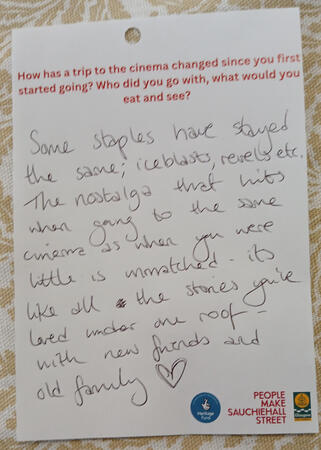 How has a trip to the cinema changed since you first
started going? Who did you go with, what would you
eat and see?
Some staples have stayed
the same; iceblasts, revels etc.
The nostalga that hits
when going to the same
cinema as when you were
little is unmatched - its
like all the stories you've
loved under one roof -
with new friends and
old family ♡
Heritage
Fund
PEOPLE
MAKE
SAUCHIEHALL
STREET